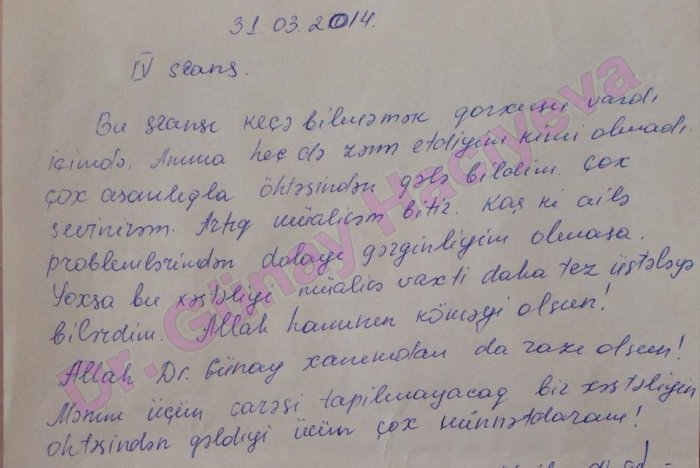 31.03.2014.
IV seans.
Bu seansı keçə bilməmək qorxusu vardı
içimdə. Amma heç də zənn etdiyim kimi olmadı
çox asanlıqla öhtəsindən gələ bildim. Çox
sevinirəm. Artıq müalicəm bitir. Kaş ki ailə
problemlərindən dolayı gərginliyim olmasa.
Yoxsa bu xəstəliyi müalicə vaxti daha tez üstələyə
bilərdim. Allah hamının köməyi olsun!
Allah Dr. Günay xanımdan da razı olsun!
Mənim üçün carəsi tapilmayacaq bir xəstəliyin
öhtəsindən gəldiyi üçün çox minnətdaram!
Dr. Günay Hacıyeva